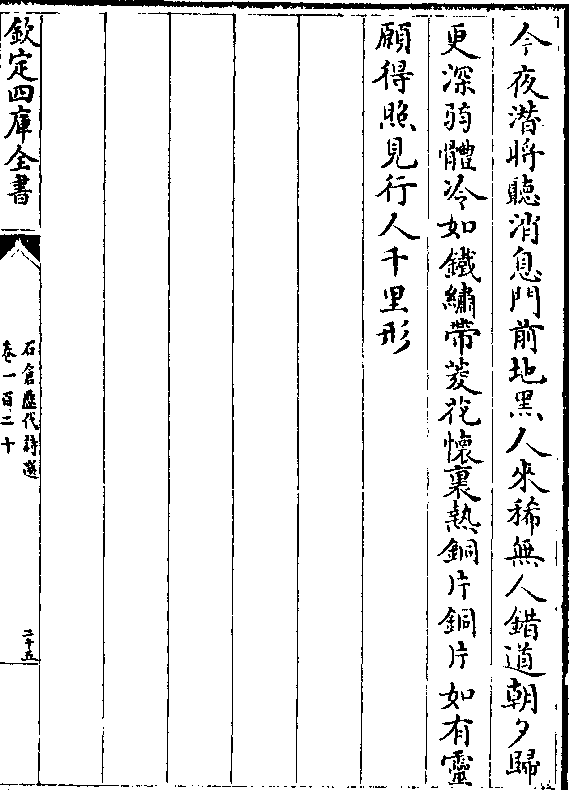 今夜潛將聽消息門前地黑人來稀無人錯道朝夕歸
更深弱體冷如鐵繡帶菱花懷裏熱銅片銅片如有靈
願得照見行人千里形
欽定四庫全書
石倉歷代詩選
卷一百二十
二十五